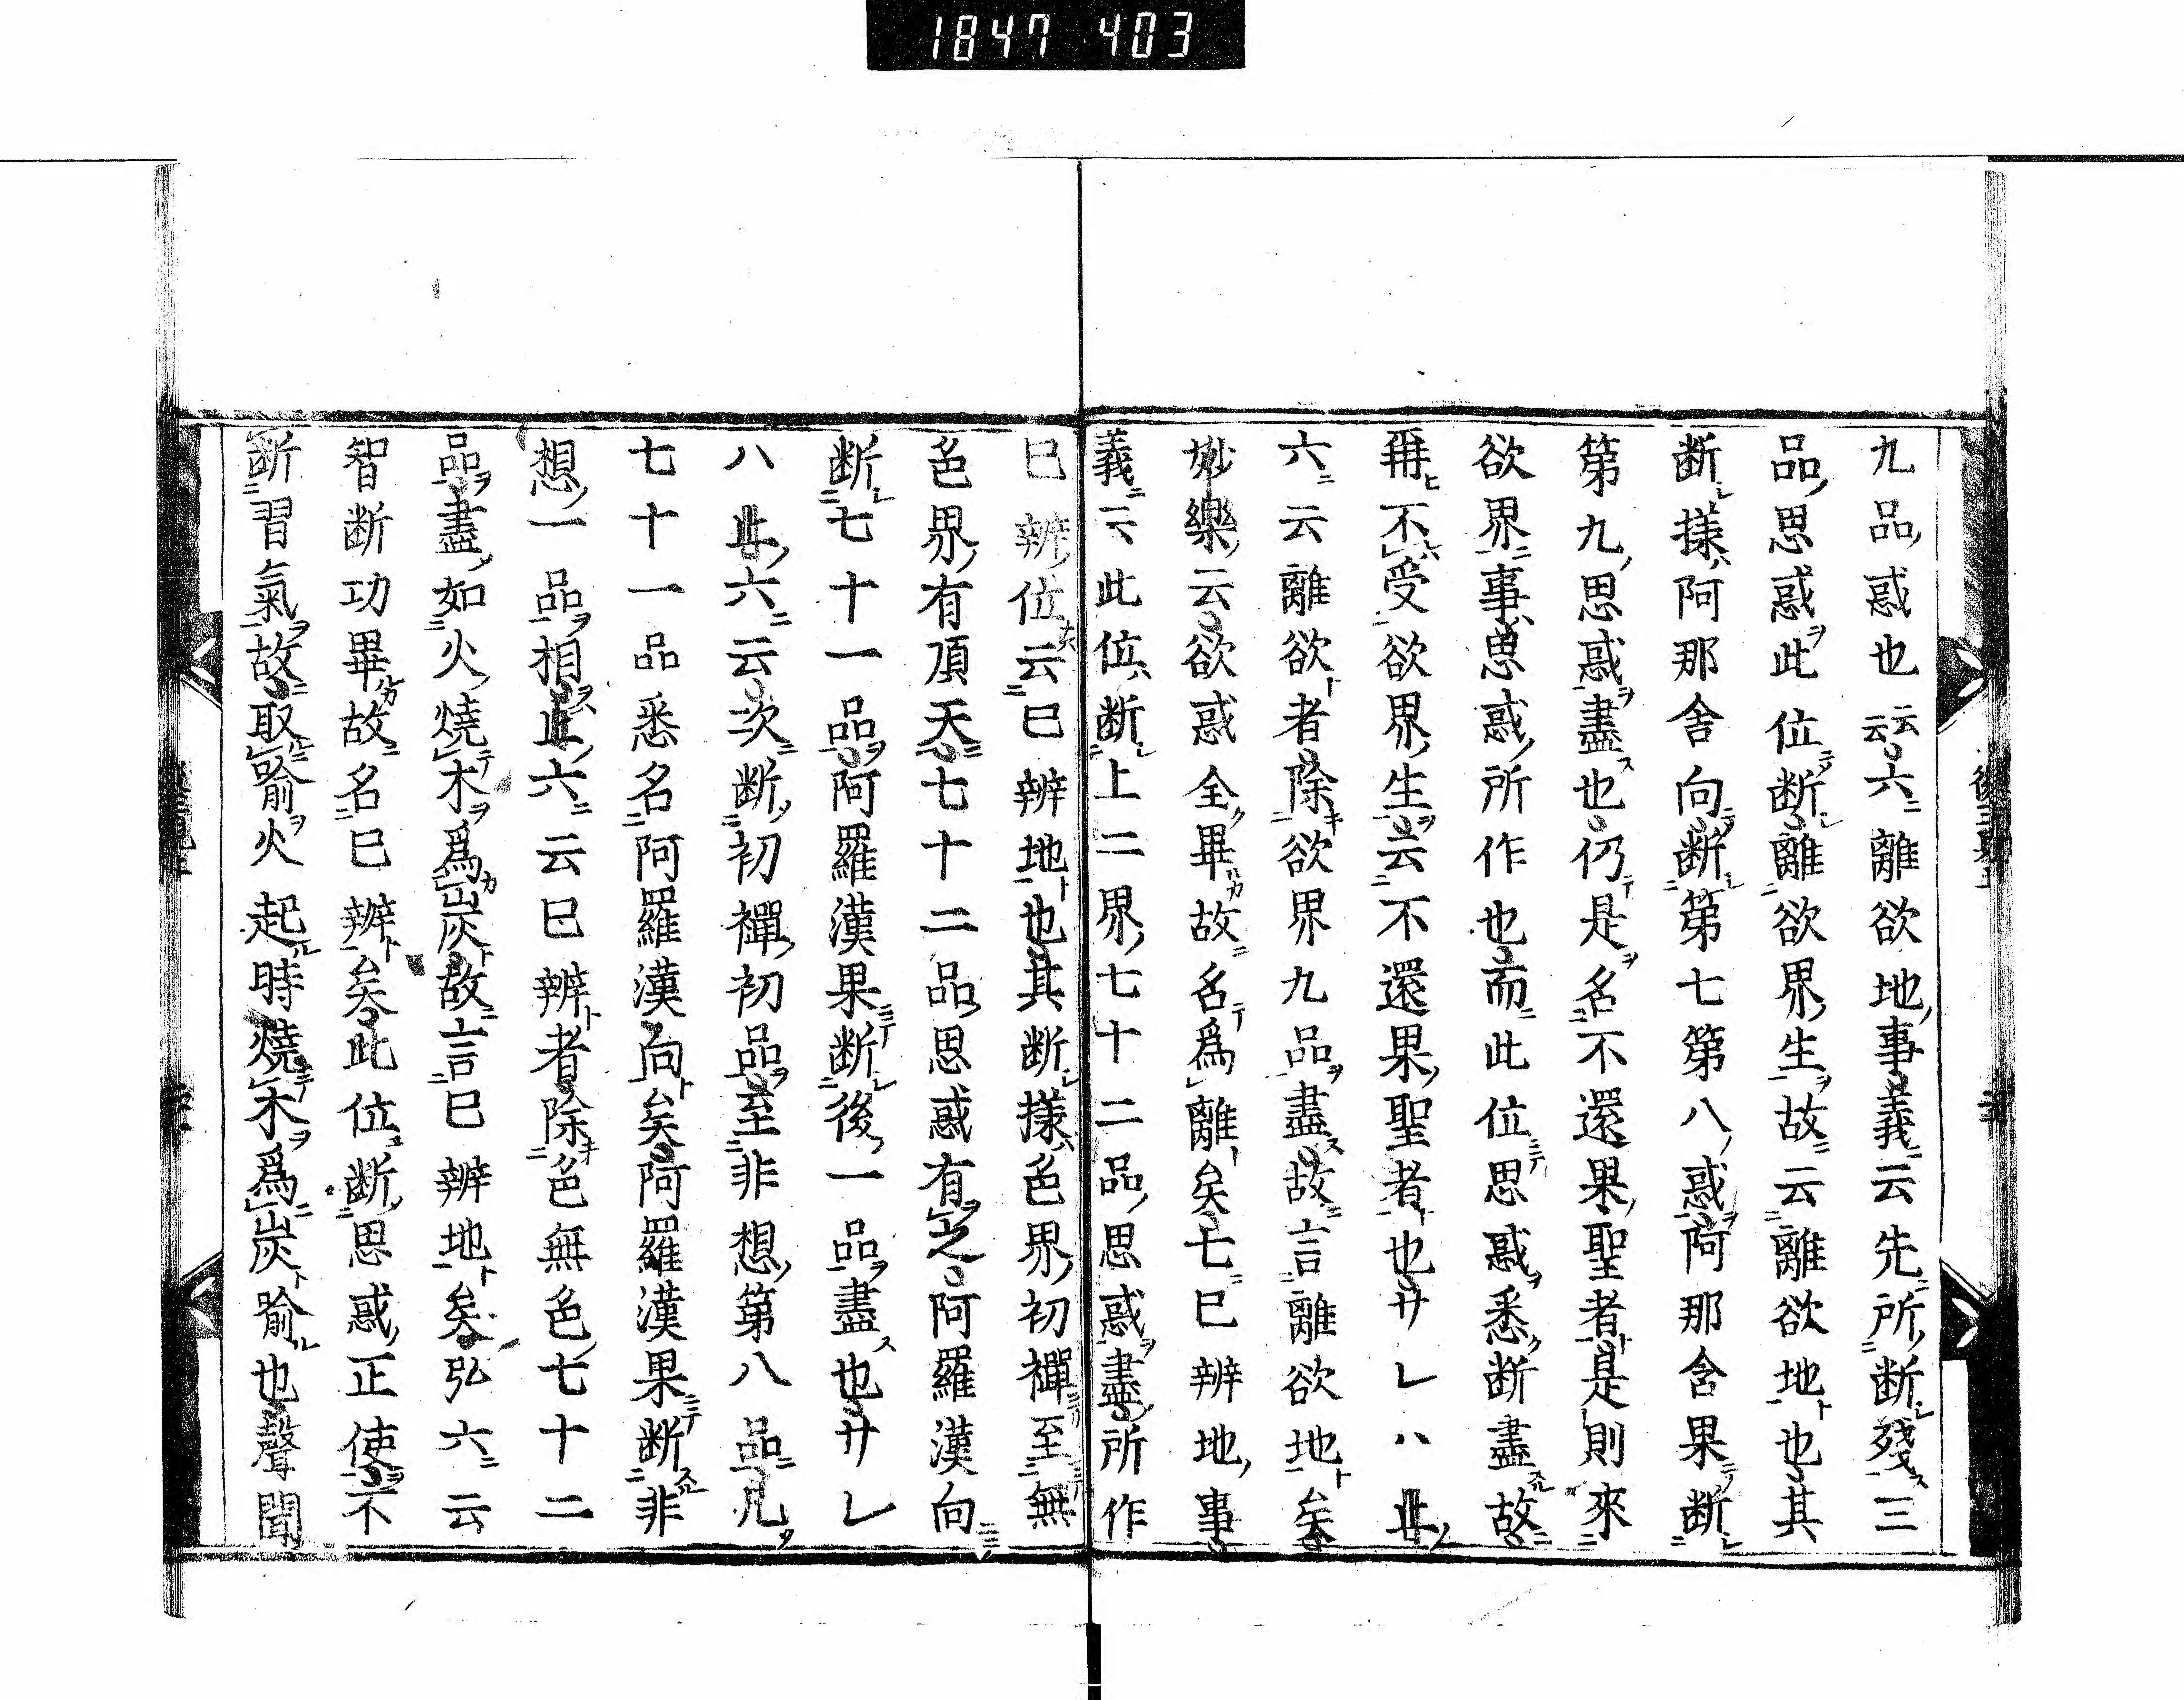 1847 403
九品惑也云云六離欲地事義云先所断殘三
品思惑此位断離欲界生故云離欲地也其
断様阿那舍向断第七第八惑阿那含果断
第九思惑盡也仍是名不還果聖者是則來
欲界事思惑所作也而此位思惑悉断盡故
再不受欲界生云不還果聖者也サレハ
六云離欲者除欲界九品盡故言離欲地矣
妙樂云欲惑全畢故名為離矣七已辨地事
義云此位断上二界七十二品思惑盡所作
已辨位云已辨地也其断様色界初禪至無
色界有頂天七十二品思惑有之阿羅漢向
断七十一品阿羅漢果断後一品盡也サレ
八 六云次断初禪初品至非想第八品凡
七十一品悉名阿羅漢向矣阿羅漢果断非
想一品相 六云已辨者除色無色七十二
品盡如火燒木爲炭故言已辨地矣弘六云
智断功畢故名已辨矣此位断思惑正使不
断習氣故取喻火起時燒木爲炭喻也聲聞